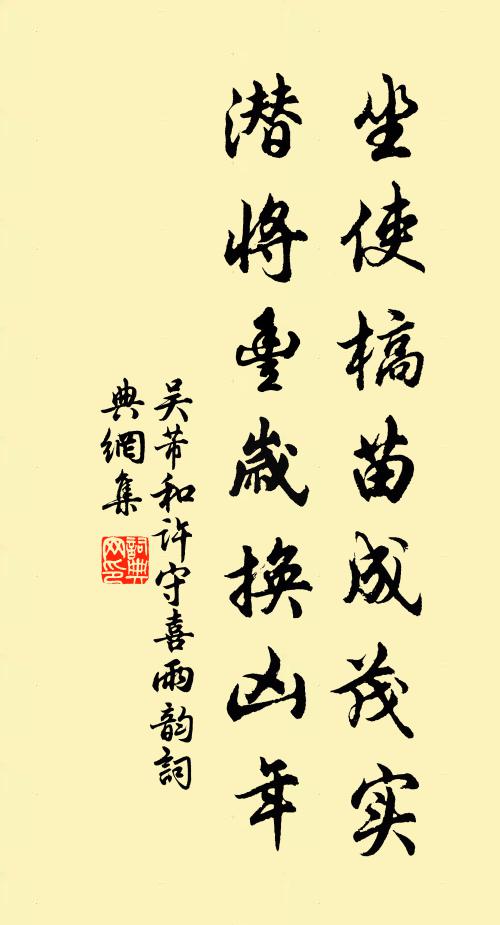 坐使槁苗成茂实
潜将豊岁换凶年
吴芾和许守喜雨韵詞
典網集
詞典
网印